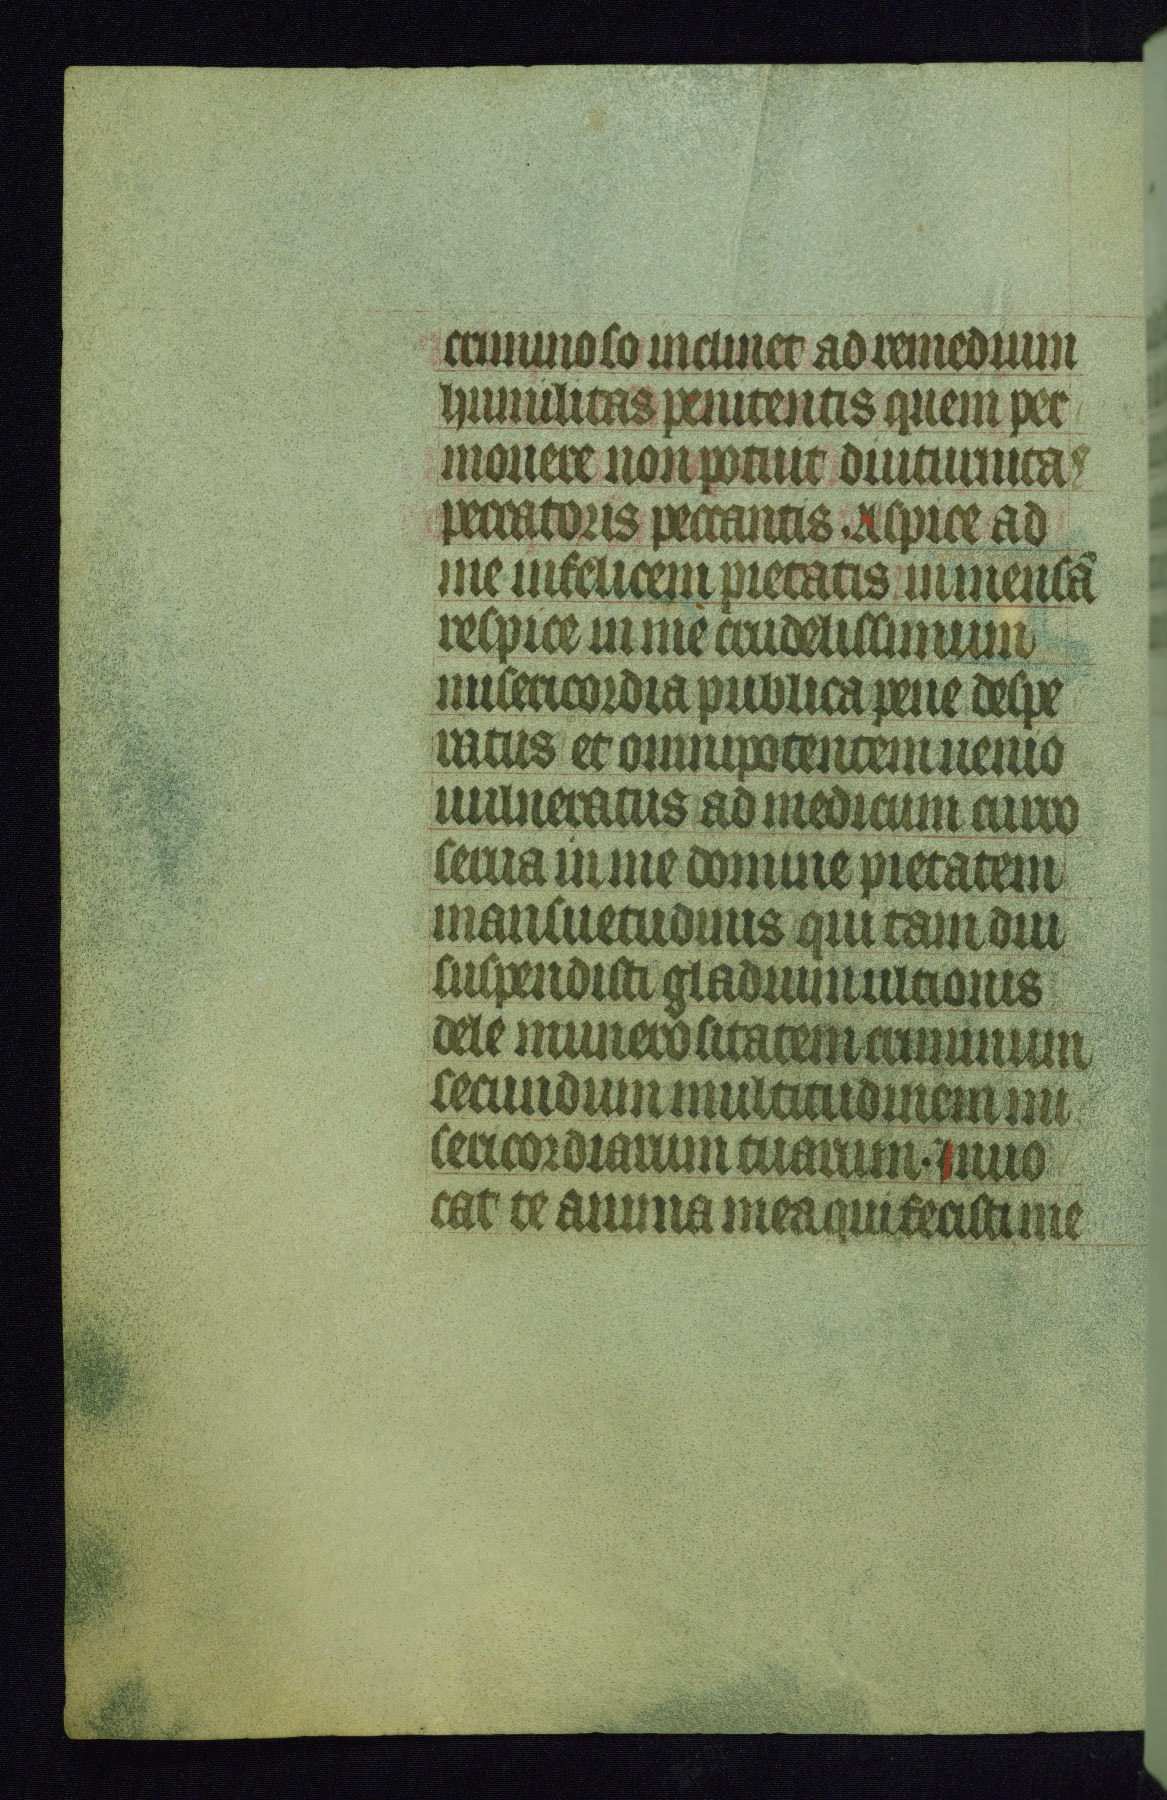 criminoso inclinet ad remedium
humilitas penitentis quem per
mouere non potuit diuturnitas
peccatoris peccantis. Aspice ad
me infelicem pietatis inmensā
respice in me crudelissimum
misericordia publica pene despe
ratus et omnipotentem uenio
uulneratus ad medicum curro
serua in me domine pietatem
mansuetudinis qui tam diu
suspendisti gladium ultionis
dele munerositatem criminum
secundum multitudinem mi
sericordiarum tuarum. Inuo
cat te anima mea qui fecisti me